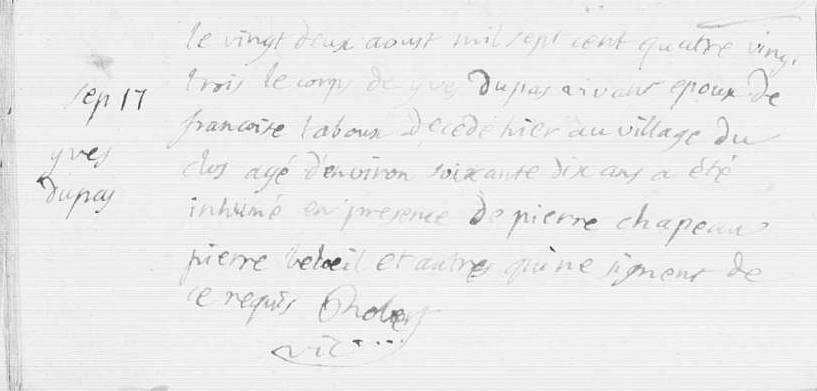 sep 17
yves
dupas
le vingt deux aoust mil sept cent quatre ving.
trois le corps de yves Dupas vivant epoux de
francoise taboux Decedé hier au village du
clos agé d'environ soixante dix ans a été
inhumé en presence De pierre chapeau
pierre et autres qui ne signent de
ce requis
vic